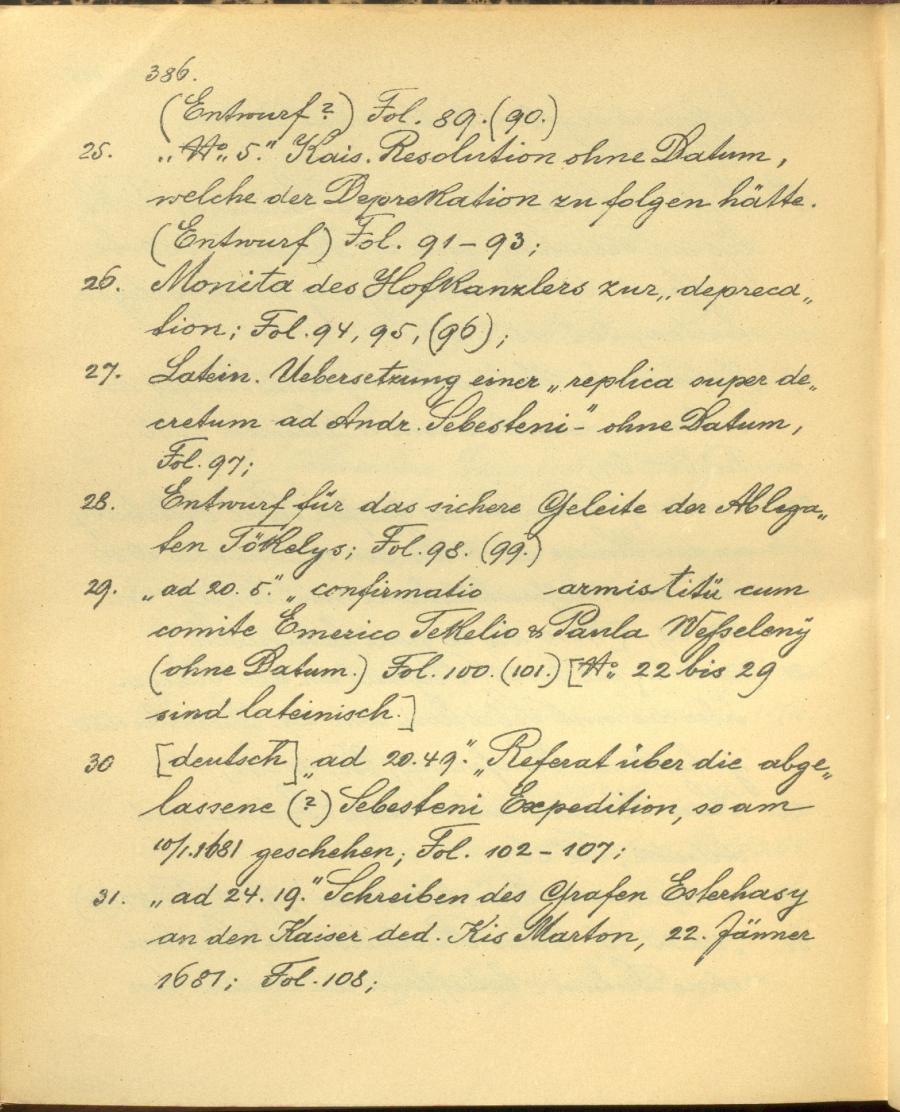 386.
(Entwurf?) Fol. 89. (90.)
25. „No „5.“ Kais. Resolution ohne Datum,
welche der Deprekation zu folgen hätte.
(Entwurf) Fol. 91-93;
26. Monita des Hofkanzlers zur „depreca„
tion; Fol. 94, 95, (96);
27. Latein. Uebersetzung einer „replica super de„
cretum ad Andr. Sebesteni-“ ohne Datum,
Fol. 97;
28. Entwurf für das sichere Geleite der Ablega„
ten Tökelys; Fol. 98. (99.)
29. „ad 20. 5.“ „confirmatio armistitü cum
comite Emerico Tekelio & Paula Weſseleny
(ohne Datum.) Fol. 100. (101.) [No 22 bis 29
sind lateinisch.]
30 [deutsch] „ad 20. 49.“ „Referat über die abge„
lassene (?) Sebesteni Expedition, so am
10/1.1681 geschehen; Fol. 102-107;
31. „ad 24. 19.“ Schreiben des Grafen Esterhasy
an den Kaiser ded. Kis Marton, 22. Jänner
1681; Fol. 108;